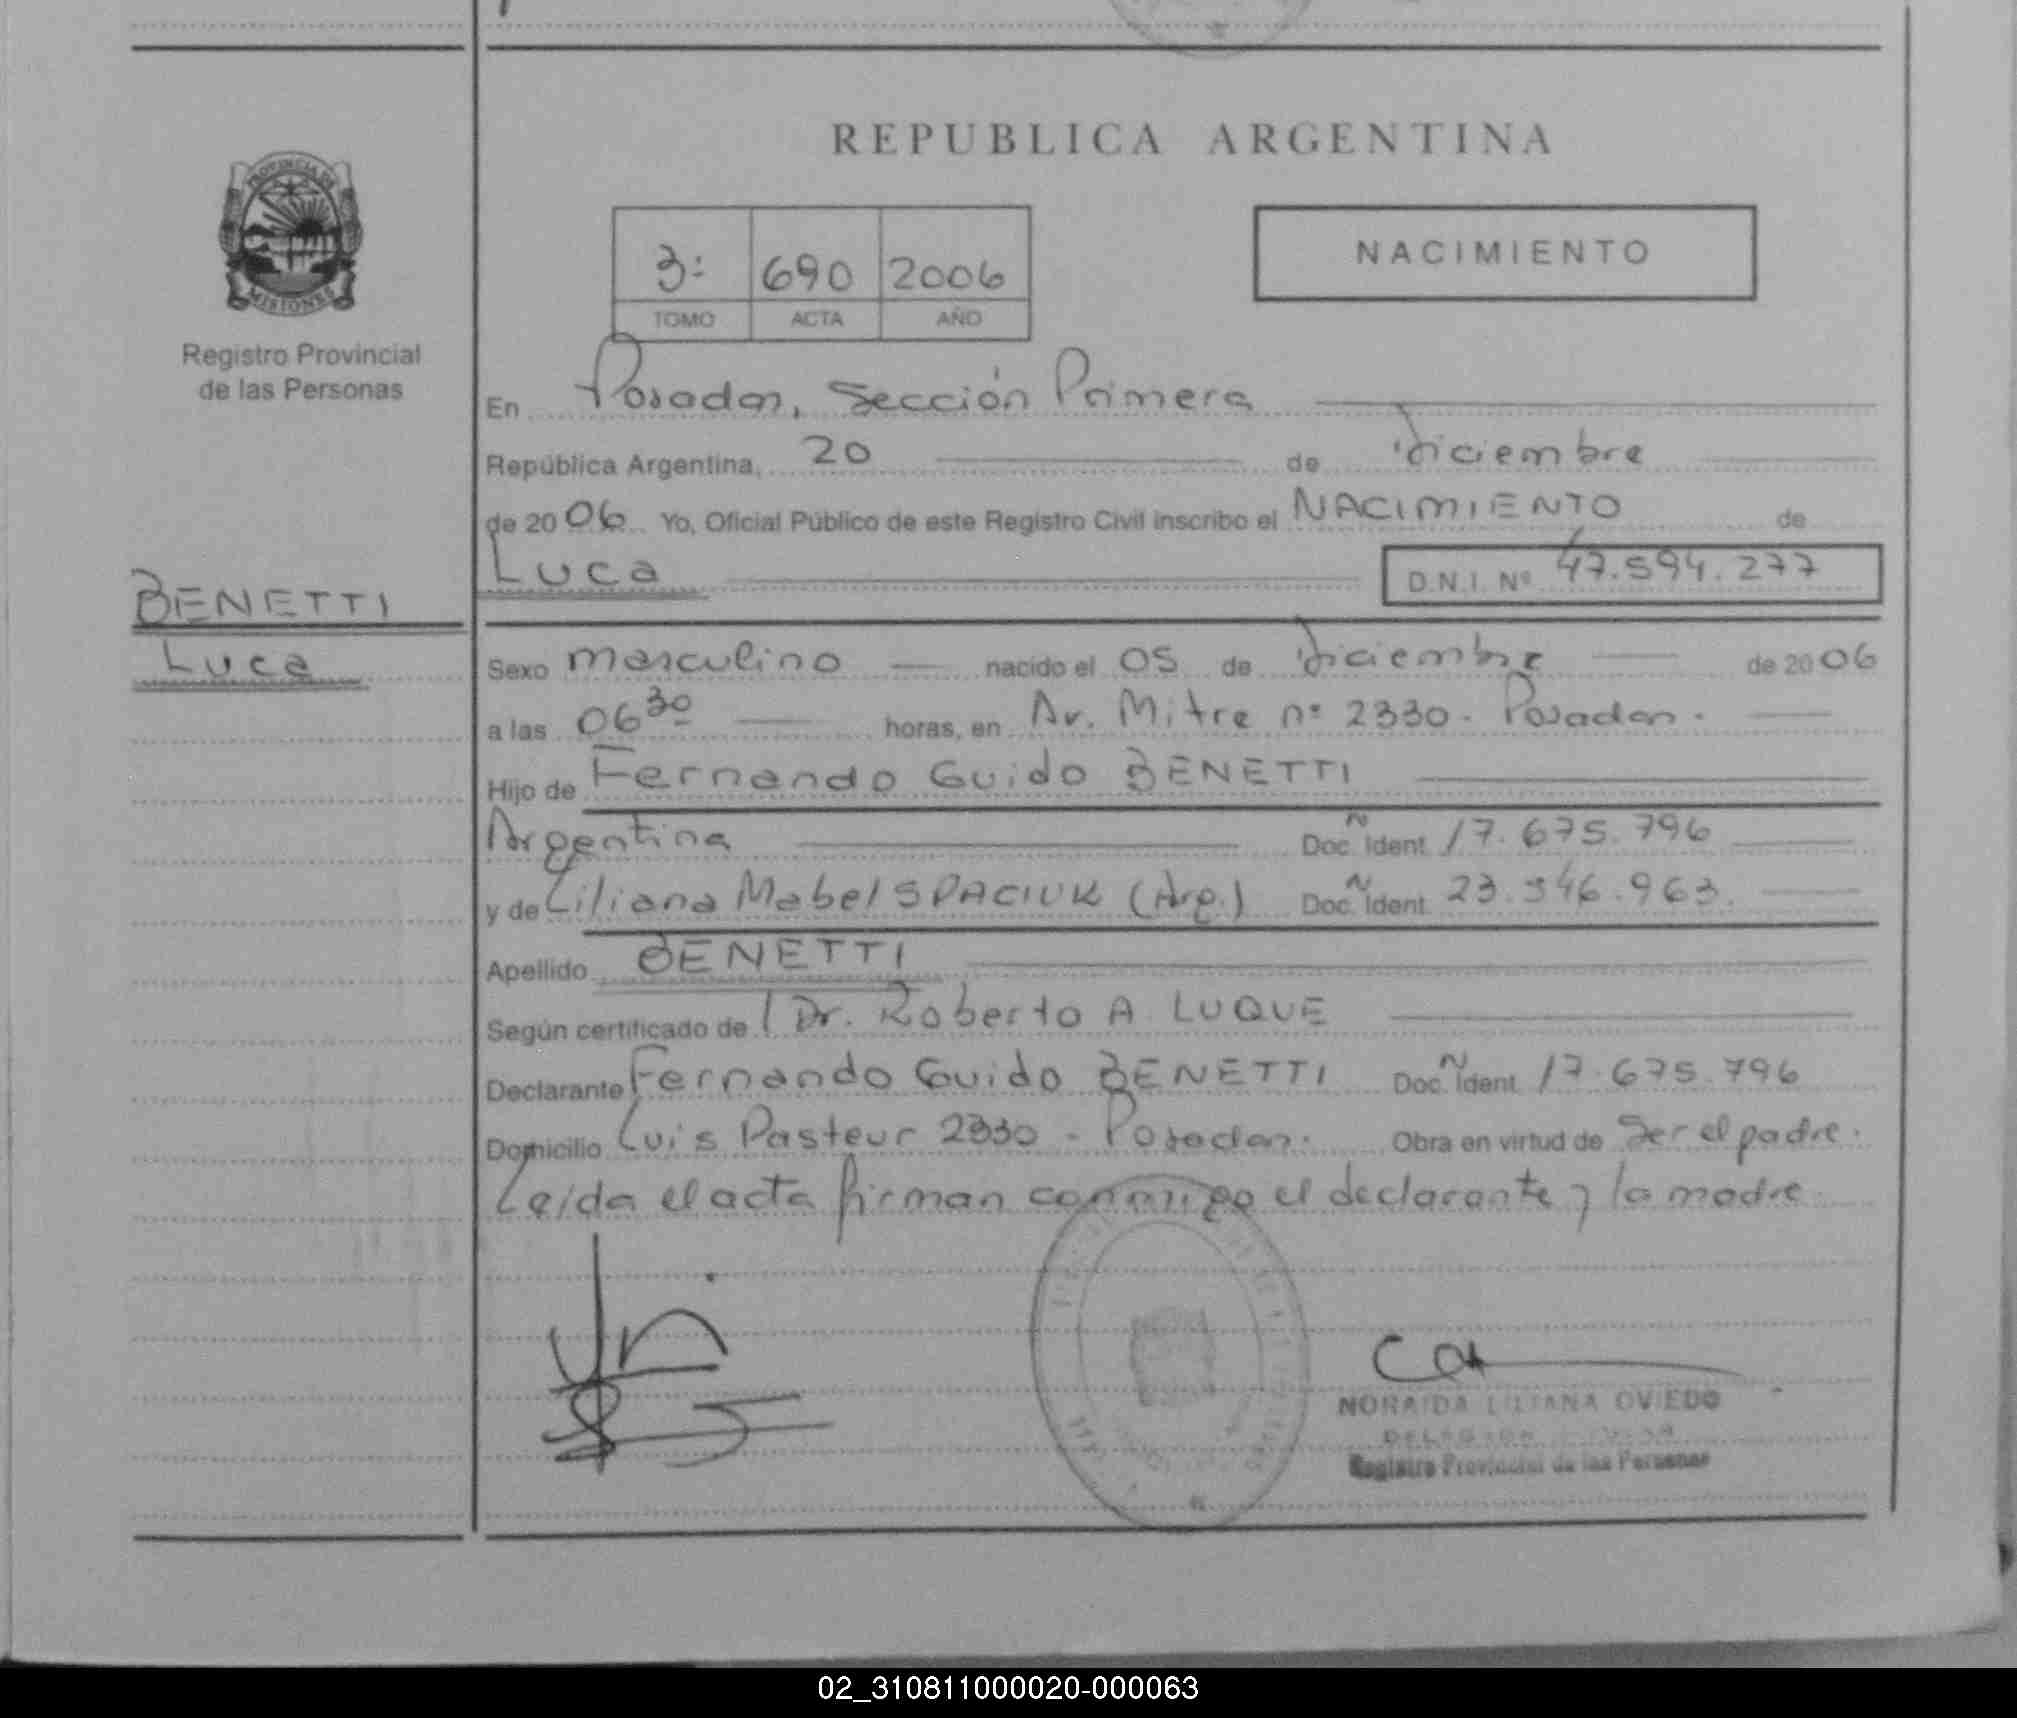 REPUBLICA ARGENTINA
PROVINCIA DE
MISIONES
Registro Provincial
de las Personas
3º 690 2006
TOMO ACTA AÑO
NACIMIENTO
En Posadas, Sección Primera
República Argentina, 20 de diciembre
de 2006 Yo, Oficial Público de este Registro Civil inscribo el NACIMIENTO de
Luca D.N.I. Nº 47.594.277
BENETTI
Luca
Sexo masculino nacido el 05 de diciembre de 2006
a las 06 30 horas, en Av. Mitre nº 2330. Posadas.
Hijo de Fernando Guido BENETTI
Argentina Doc. Ident. 17.675.796
y de Liliana Mabel SPACIUK (Arg.) Doc. Ident. 23.546.963.
Apellido BENETTI
Según certificado de Dr. Roberto A LUQUE
Declarante Fernando Guido BENETTI Doc. Ident. 17.675.796
Domicilio Luis Pasteur 2330 - Posadas. Obra en virtud de Ser el padre.
Leída el acta firman conmigo el declarante y la madre
NORAIDA LILIANA OVIEDO
Registro Provincial de las Personas
02_310811000020-000063